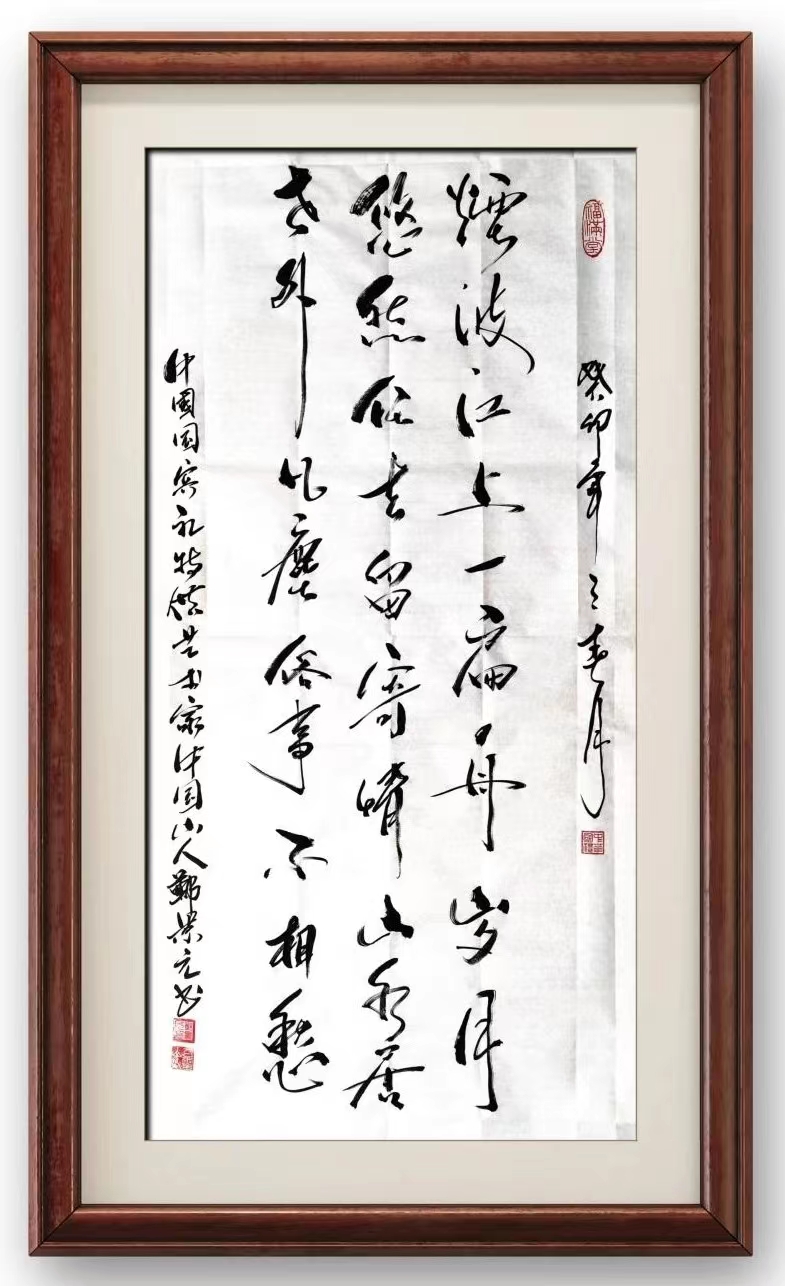 福满堂
癸卯年之春月
煙波江上一扁舟岁月
悠然任去留寄情山水居
世外凡塵俗事不相愁
中国国宾礼特供艺术家中国山人鄭荣元书